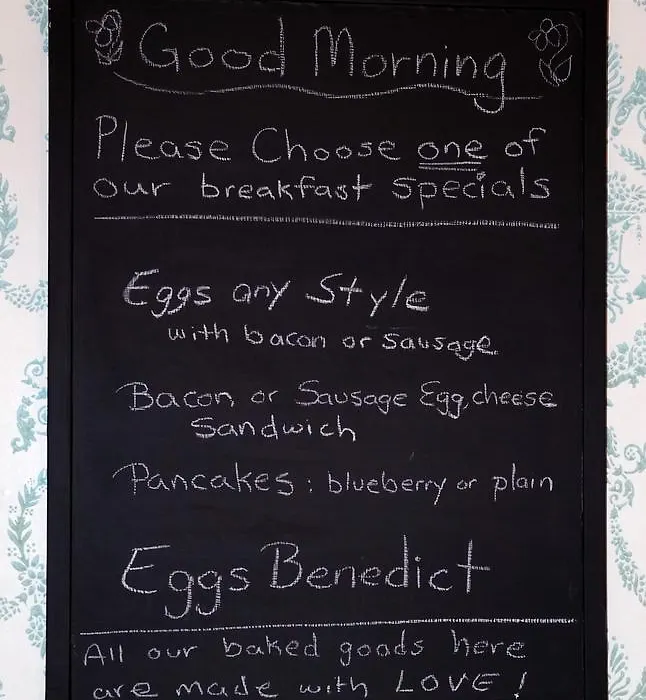 Good Morning
Please Choose one of
our breakfast specials
Eggs any Style
with bacon or sausage
Bacon or Sausage Egg, cheese
Sandwich
Pancakes : blueberry or plain
Eggs Benedict
All our baked goods here
are made with LOVE !